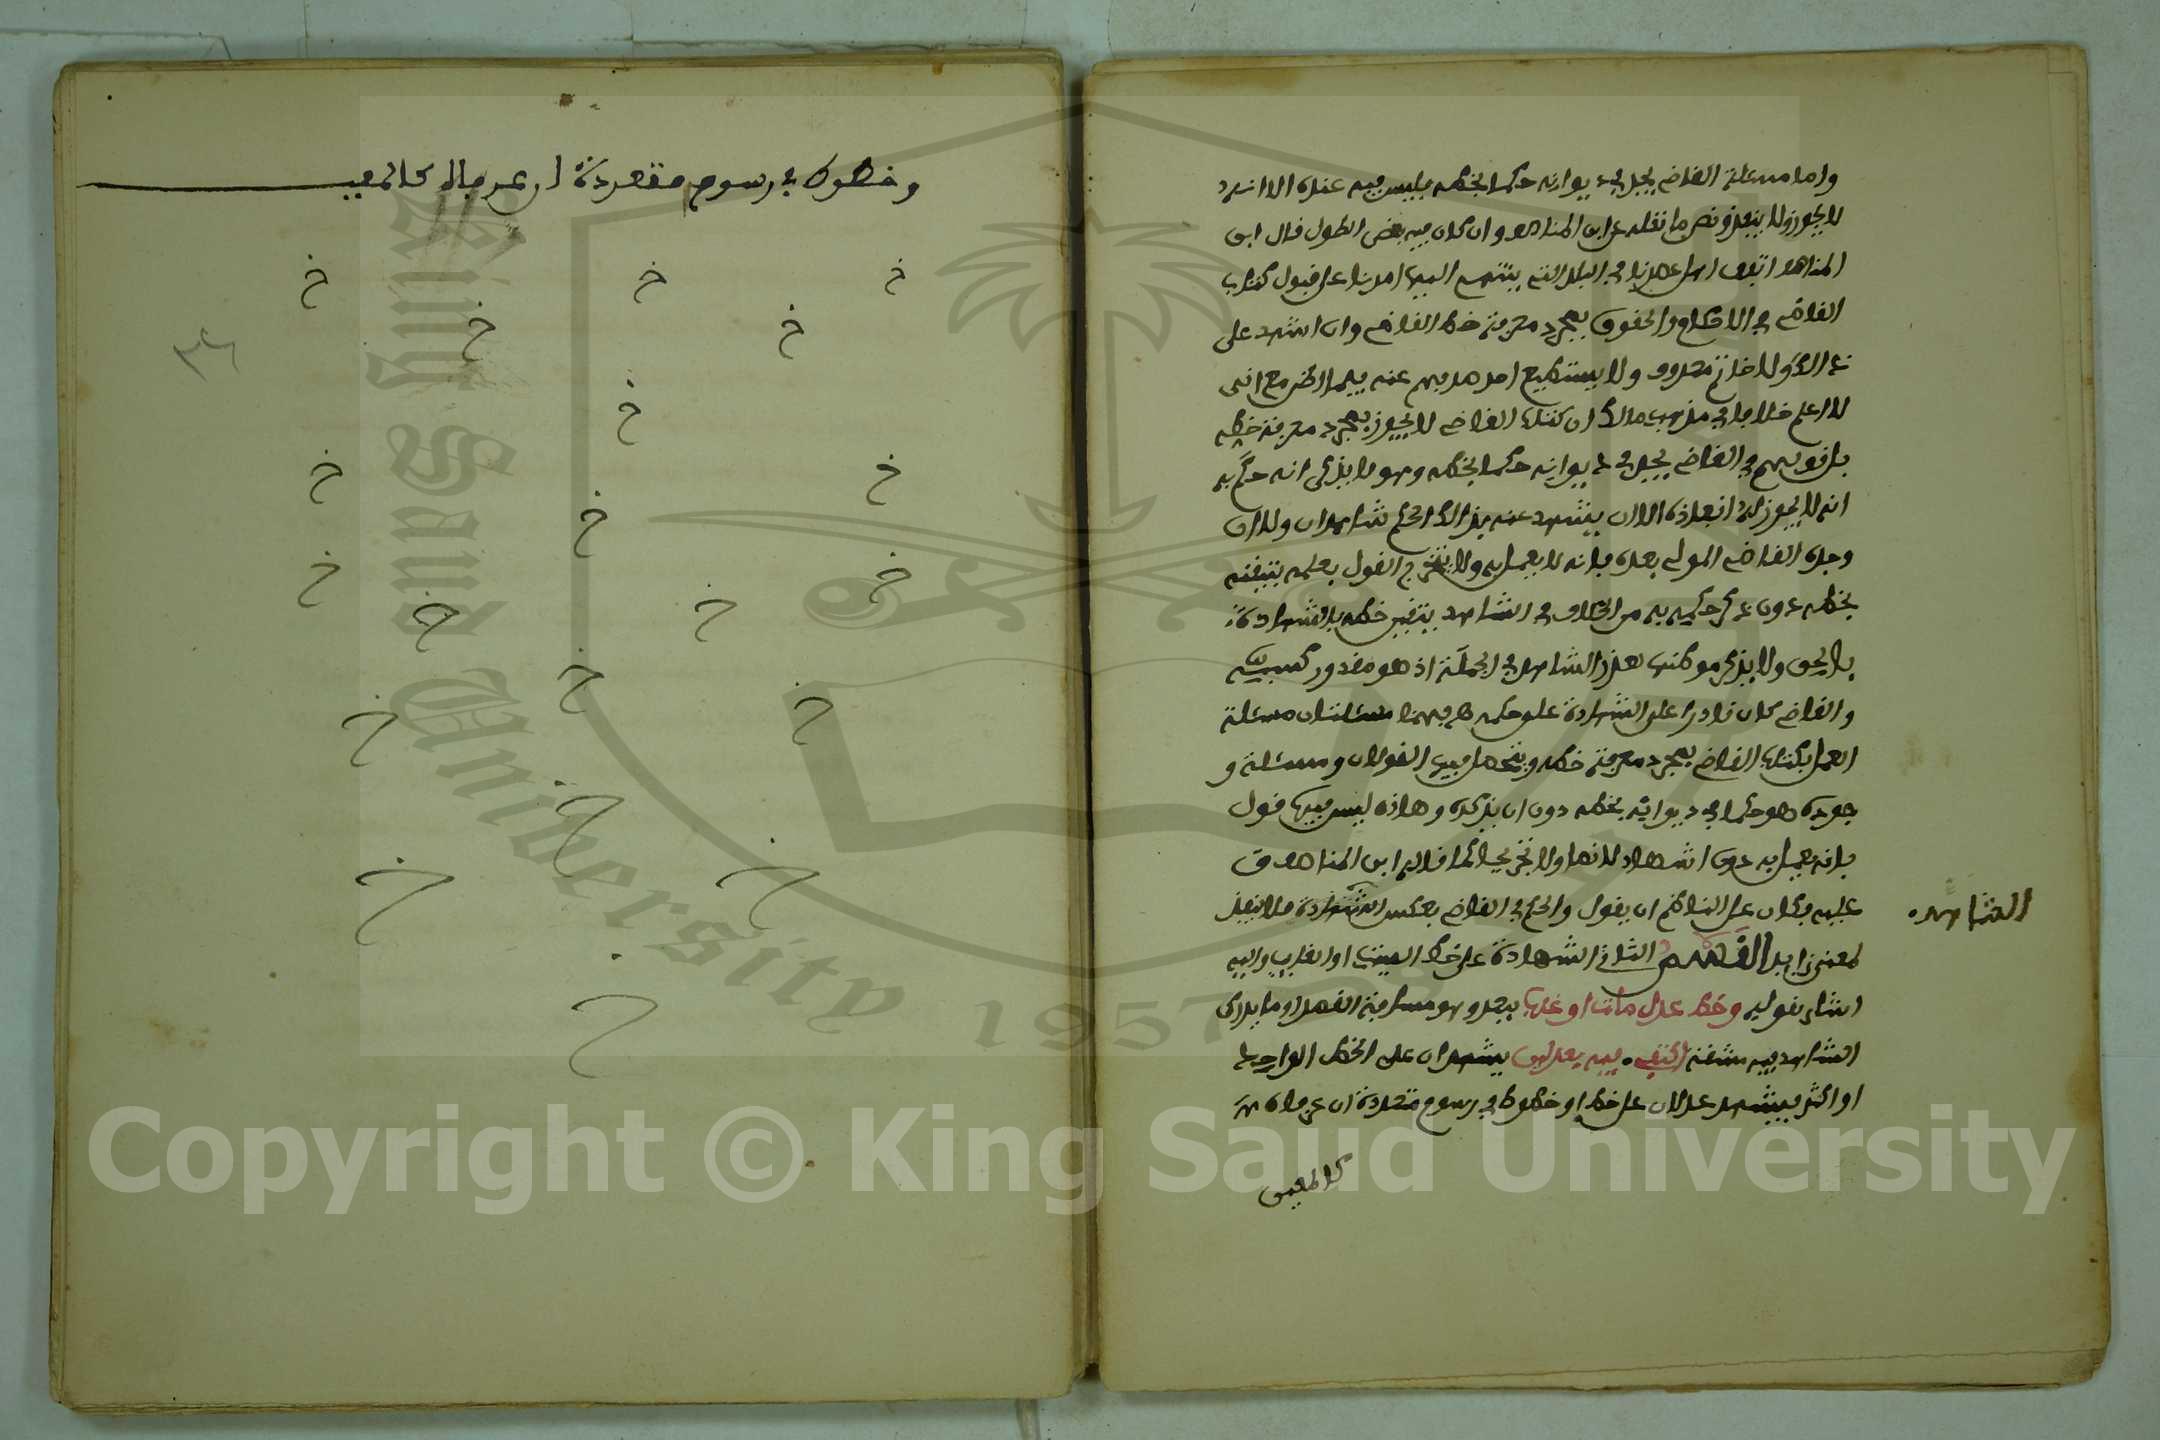 واما مسئلة القاضي يجد في ديوانه حكما بخطه فليس فيه عنده الا انه
لا يجوز ولا ينفذ ونص ما نقله عن ابن المناصف وان كان فيه بعض الطول قال ابن
المناصف اتفق اهل عصرنا في البلاد التي ينتهي اليها امرنا على قبول كتب
القاضي في الاحكام والحقوق بمجرد معرفة خط القاضي دون اشهاد على
ذالك ولا خاتم معروف ولا يستطيع احد صرفهم عنه فيما اظن مع اني
لا اعلم خلافا في مذهب مالك ان كتاب القاضي لا يجوز بمجرد معرفة خطه
بل قولهم في القاضي يجد في ديوانه حكما بخطه وهو لا يذكر انه حكم به
انه لا يجوز له انفاذه الا ان يشهد عنده بذالك الحكم شاهدان ولا ان
وجده القاضي المولى بعده فانه لا يعمل به ولا يتخرج القول بعلمه بتيقنه
بخطه دون ذكر حكمه به من الخلاف في الشاهد يتيقن خطه بالشهادة
بالحق ولا يذكر موطنها لعذر الشاهد في الجملة اذ هو مقدور كسبيه
والقاضي كان قادرا على الشهادة على حكمه فهما مسئلتان مسئلة
العمل بكتاب القاضي بمجرد معرفة خطه ويتحصل فيها القولان ومسئلة و
جوده هو حكما في ديوانه بخطه دون ان يذكره وهاذه ليس فيها قول
بانه يعمل به دون اشهاد لا نصا ولا تخريجا كما قاله ابن المناصف
عليه فكان على الناظم ان يقول والحكم في القاضي بعكس الشهادة فلا ينفذ
لمعنى زايد القسم الثاني الشهادة على خط الميت او الغايب واليه
اشار بقوله وخط عدل مات او غاب ببعد وهو مسافة القصر او ما يدرك
الشاهد فيه مشقة اكتفي فيه بعدلين يشهدان على الخط الواحد
او اكثر فيشهد عدلان على خط او خطوط في رسوم متعددة ان عدما مـ
الشاهد
كالمعين
وخطوط في رسوم متعددة ان عدم مال كالمعين
خ خ خ
خ خ
خ
خ خ
خ
خ خ
خ خ
خ
خ خ
خ
خ خ
خ
٣٤
King Saud University
1957
Copyright © King Saud University